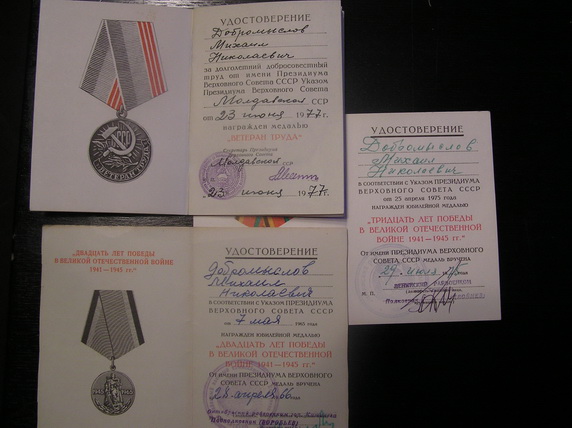 УДОСТОВЕРЕНИЕ
Добромыслов
Михаил
Николаевич
за долголетний добросовестный
труд от имени Президиума
Верховного Совета СССР Указом
Президиума Верховного Совета
Молдавской ССР
от 23 июня 1977 г.
НАГРАЖДЕН МЕДАЛЬЮ
"ВЕТЕРАН ТРУДА"
Молдавской ССР
23 июня 1977 г.
СССР
ВЕТЕРАН ТРУДА
УДОСТОВЕРЕНИЕ
Добромыслов
Михаил
Николаевич
В СООТВЕТСТВИИ с УКАЗОМ ПРЕЗИДИУМА
ВЕРХОВНОГО СОВЕТА СССР
от 25 апреля 1975 года
НАГРАЖДЕН ЮБИЛЕЙНОЙ МЕДАЛЬЮ
"ТРИДЦАТЬ ЛЕТ ПОБЕДЫ
В ВЕЛИКОЙ ОТЕЧЕСТВЕННОЙ
ВОЙНЕ 1941—1945 гг."
От имени ПРЕЗИДИУМА ВЕРХОВНОГО
СОВЕТА СССР МЕДАЛЬ ВРУЧЕНА
М. П.
"ДВАДЦАТЬ ЛЕТ ПОБЕДЫ
В ВЕЛИКОЙ ОТЕЧЕСТВЕННОЙ ВОЙНЕ
1941—1945 гг."
УДОСТОВЕРЕНИЕ
Добромыслов
Михаил
Николаевич
В СООТВЕТСТВИИ с УКАЗОМ ПРЕЗИДИУМА
ВЕРХОВНОГО СОВЕТА СССР
от 7 мая 1965 года
НАГРАЖДЕН ЮБИЛЕЙНОЙ МЕДАЛЬЮ
"ДВАДЦАТЬ ЛЕТ ПОБЕДЫ
В ВЕЛИКОЙ ОТЕЧЕСТВЕННОЙ
ВОЙНЕ 1941—1945 гг."
От имени ПРЕЗИДИУМА ВЕРХОВНОГО
СОВЕТА СССР МЕДАЛЬ ВРУЧЕНА
28 апреля 66